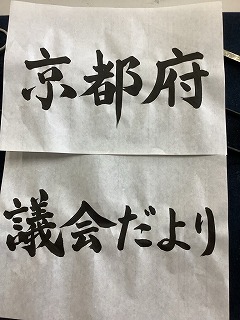 京都府
議会だより